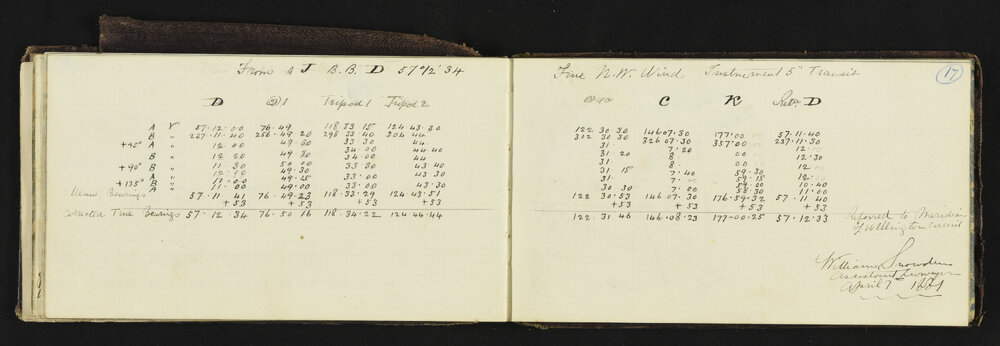 From A J B.B. D 57°12' 34
D ⊙1 Tripod 1 Tripod 2
A V 57.12.00 76.49 118.33 15 124 43.30
B " 237.11.40 256.49.20 298.33 40 304 44
+45° A " 12.00 49.30 33 30 44
B " 12.20 49.30 34.00 44.40
+90° B " 11.30 50.00 33 30 43.40
A " 12.00 49.30 33.00 43 30
+135° B " 11.00 49.15 33.00
A " 11.00 49.00 33.00 43.30
Mean Bearings 57.11.41 76.49.23 118.33.29 124.43.51
+53 +53 +53 +53
Corrected True Bearings 57.12.34 76.50 16 118.34.22 124 44.44
Fine N.W. Wind Instrument 5" Transit
17
C K D
122 30 30 146 07.30 177.00 57.11.40
302 30 30 326 07.30 357.00 237.11.30
31 7.20 00 12
31 20 8 00 12.30
31 8 00 12
31 15 7.40 59.30 12
31 7 59.15 12
30 30 7.00 58.30 11.00
122 30.53 146 07.30 176.59.32 57.11.40
+53 +53 +53 +53
122.31 46 146.08.23 177.00.25 57.12.33 referred to Meridian
of Wellington Circuit
William Snowden
Assistant Surveyor
April 7th 1881